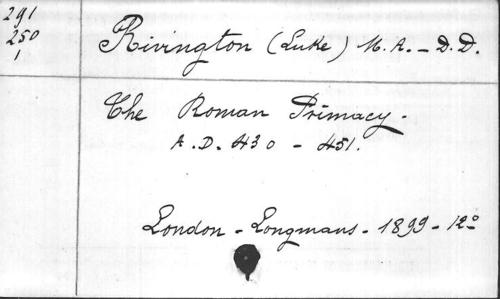 291
250
1
Rivington (Luke) M.A. - D.D.
The Roman Primacy.
A.D. 430 - 451.
London - Longmans - 1899 - 12º